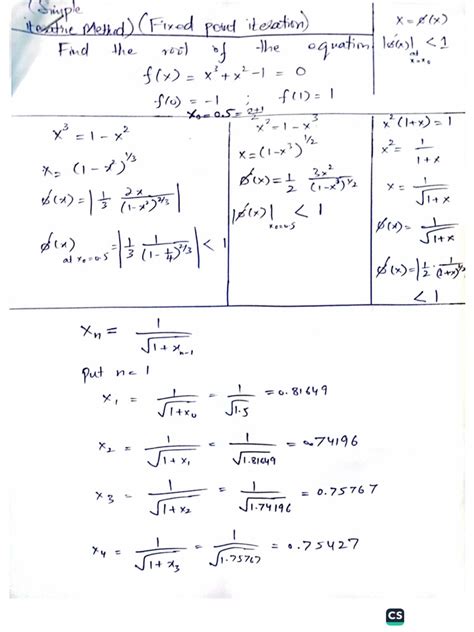 (Simple
iterative Method) (Fixed point iteration)
Find the root of the equation
f(x) = x³ + x² - 1 = 0
f(0) = -1 ; f(1) = 1
x₀ = 0.5 = (0+1)/2
x = φ(x)
|φ'(x)| < 1
at x = x₀
x³ = 1 - x²
x = (1 - x²)^(1/3)
φ'(x) = | 1/3 2x/(1-x²)^(2/3) |
φ'(x) at x₀ = 0.5 = | 1/3 1/(1-1/4)^(2/3) | < 1
x² = 1 - x³
x = (1-x³)^(1/2)
φ'(x) = 1/2 3x²/(1-x³)^(1/2)
|φ'(x)| x₀=0.5 < 1
x²(1+x) = 1
x² = 1/(1+x)
x = 1/√(1+x)
φ(x) = 1/√(1+x)
φ'(x) = | 1/2 · 1/(1+x)^(3/2) |
< 1
xₙ = 1/√(1 + xₙ₋₁)
put n = 1
x₁ = 1/√(1+x₀) = 1/√1.5 = 0.81649
x₂ = 1/√(1+x₁) = 1/√1.81649 = 0.74196
x₃ = 1/√(1+x₂) = 1/√1.74196 = 0.75767
x₄ = 1/√(1+x₃) = 1/√1.75767 = 0.75427
CS